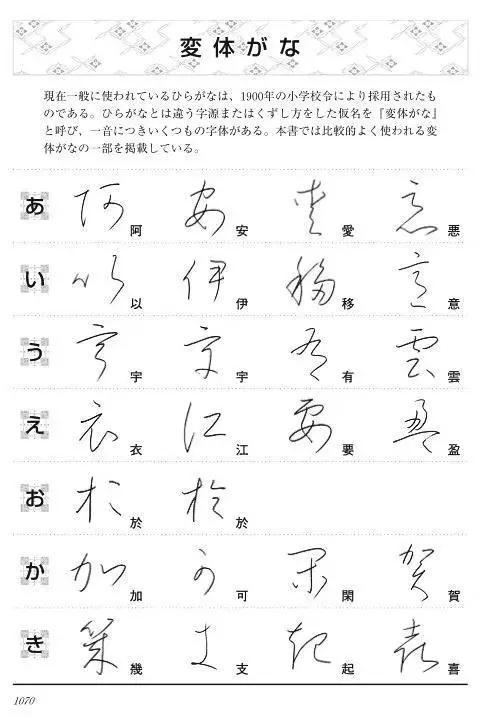 変体がな
現在一般に使われているひらがなは、1900年の小学校令により採用されたも
のである。ひらがなとは違う字源またはくずし方をした仮名を『変体がな』
と呼び、一音につきいくつもの字体がある。本書では比較的よく使われる変
体がなの一部を掲載している。
あ 阿 安 愛 悪
い 以 伊 移 意
う 宇 宇 有 雲
え 衣 江 要 盈
お 於 於
か 加 可 閑 賀
き 幾 支 起 喜
1070